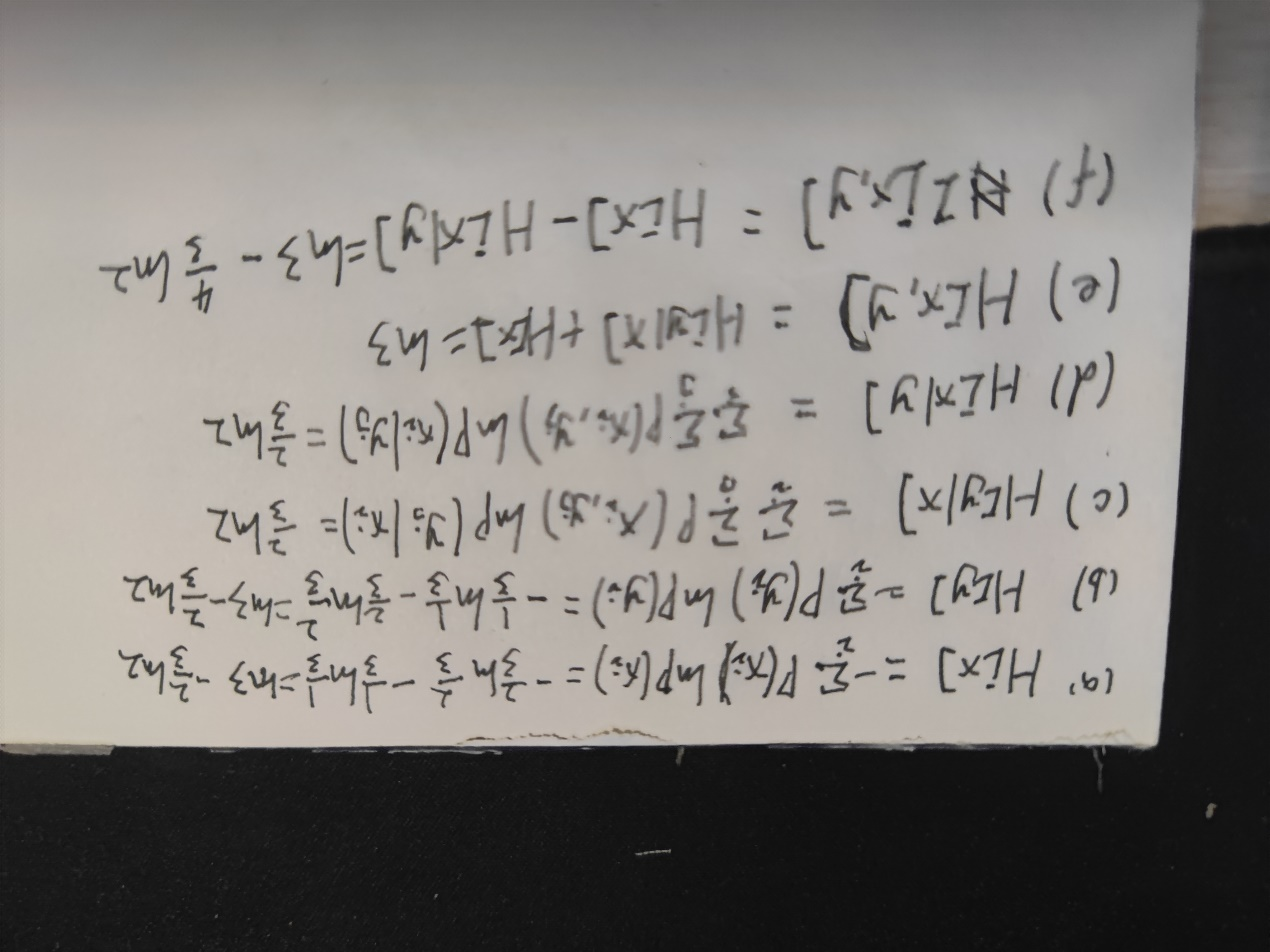 (a) H[x] = -∑_i P(x_i) ln P(x_i) = -2/3 ln 2/3 - 1/3 ln 1/3 = ln3 - 2/3 ln2
(b) H[y] = -∑_i P(y_i) ln P(y_i) = -1/3 ln 1/3 - 2/3 ln 2/3 = ln3 - 2/3 ln2
(c) H[y|x] = ∑_i ∑_j P(x_i, y_j) ln P(y_j|x_i) = 2/3 ln2
(d) H[x|y] = ∑_i ∑_j P(x_i, y_j) ln P(x_i|y_j) = 2/3 ln2
(e) H[x,y] = H[y|x] + H[x] = ln3
(f) I[x,y] = H[x] - H[x|y] = ln3 - 4/3 ln2